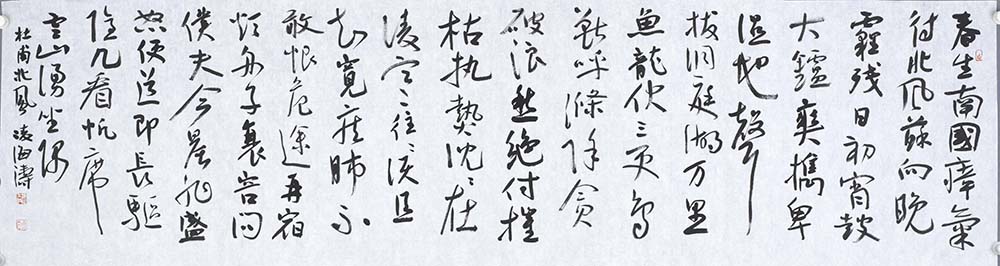 春生南國瘴氣
待北风蘇向晚
霾残日初宵鼓
大鑪爽攜卑
湿地聲
拔洞庭湖万里
魚龍伏三更鸟
獸呼滌除貪
破浪愁絕付摧
枯执熱沈々在
凌寒々往々须且
知寬疾肺不
敢恨危途再宿
烦舟子衰容问
僕夫今晨非盛
怒便道即長驅
隐几看帆席
雲山湧坐隅
杜甫北風 海濤